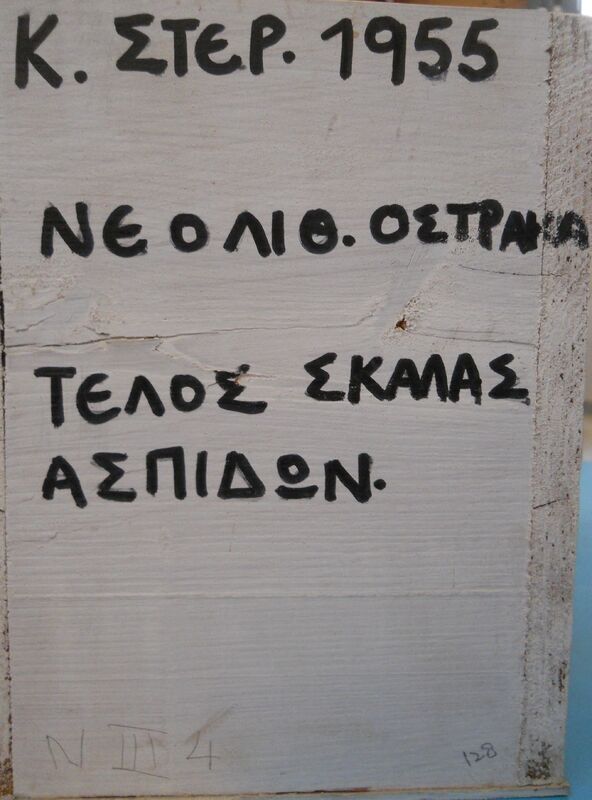 Κ. ΣΤΕΡ. 1955
ΝΕΟΛΙΘ. ΟΣΤΡΑΚΑ
ΤΕΛΟΣ ΣΚΑΛΑΣ
ΑΣΠΙΔΩΝ.
N III 4
128